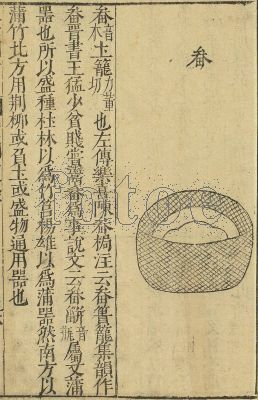 畚
畚音本土籠力董切也左傳樂喜陳畚梮注云畚簣籠集韻作
畚晉書王猛少貧賤嘗鬻畚爲事說文云畚缾音瓶屬又蒲
器也所以盛種杜林以爲竹筥楊雄以爲蒲器然南方以
蒲竹北方用荆柳或負土或盛物通用器也